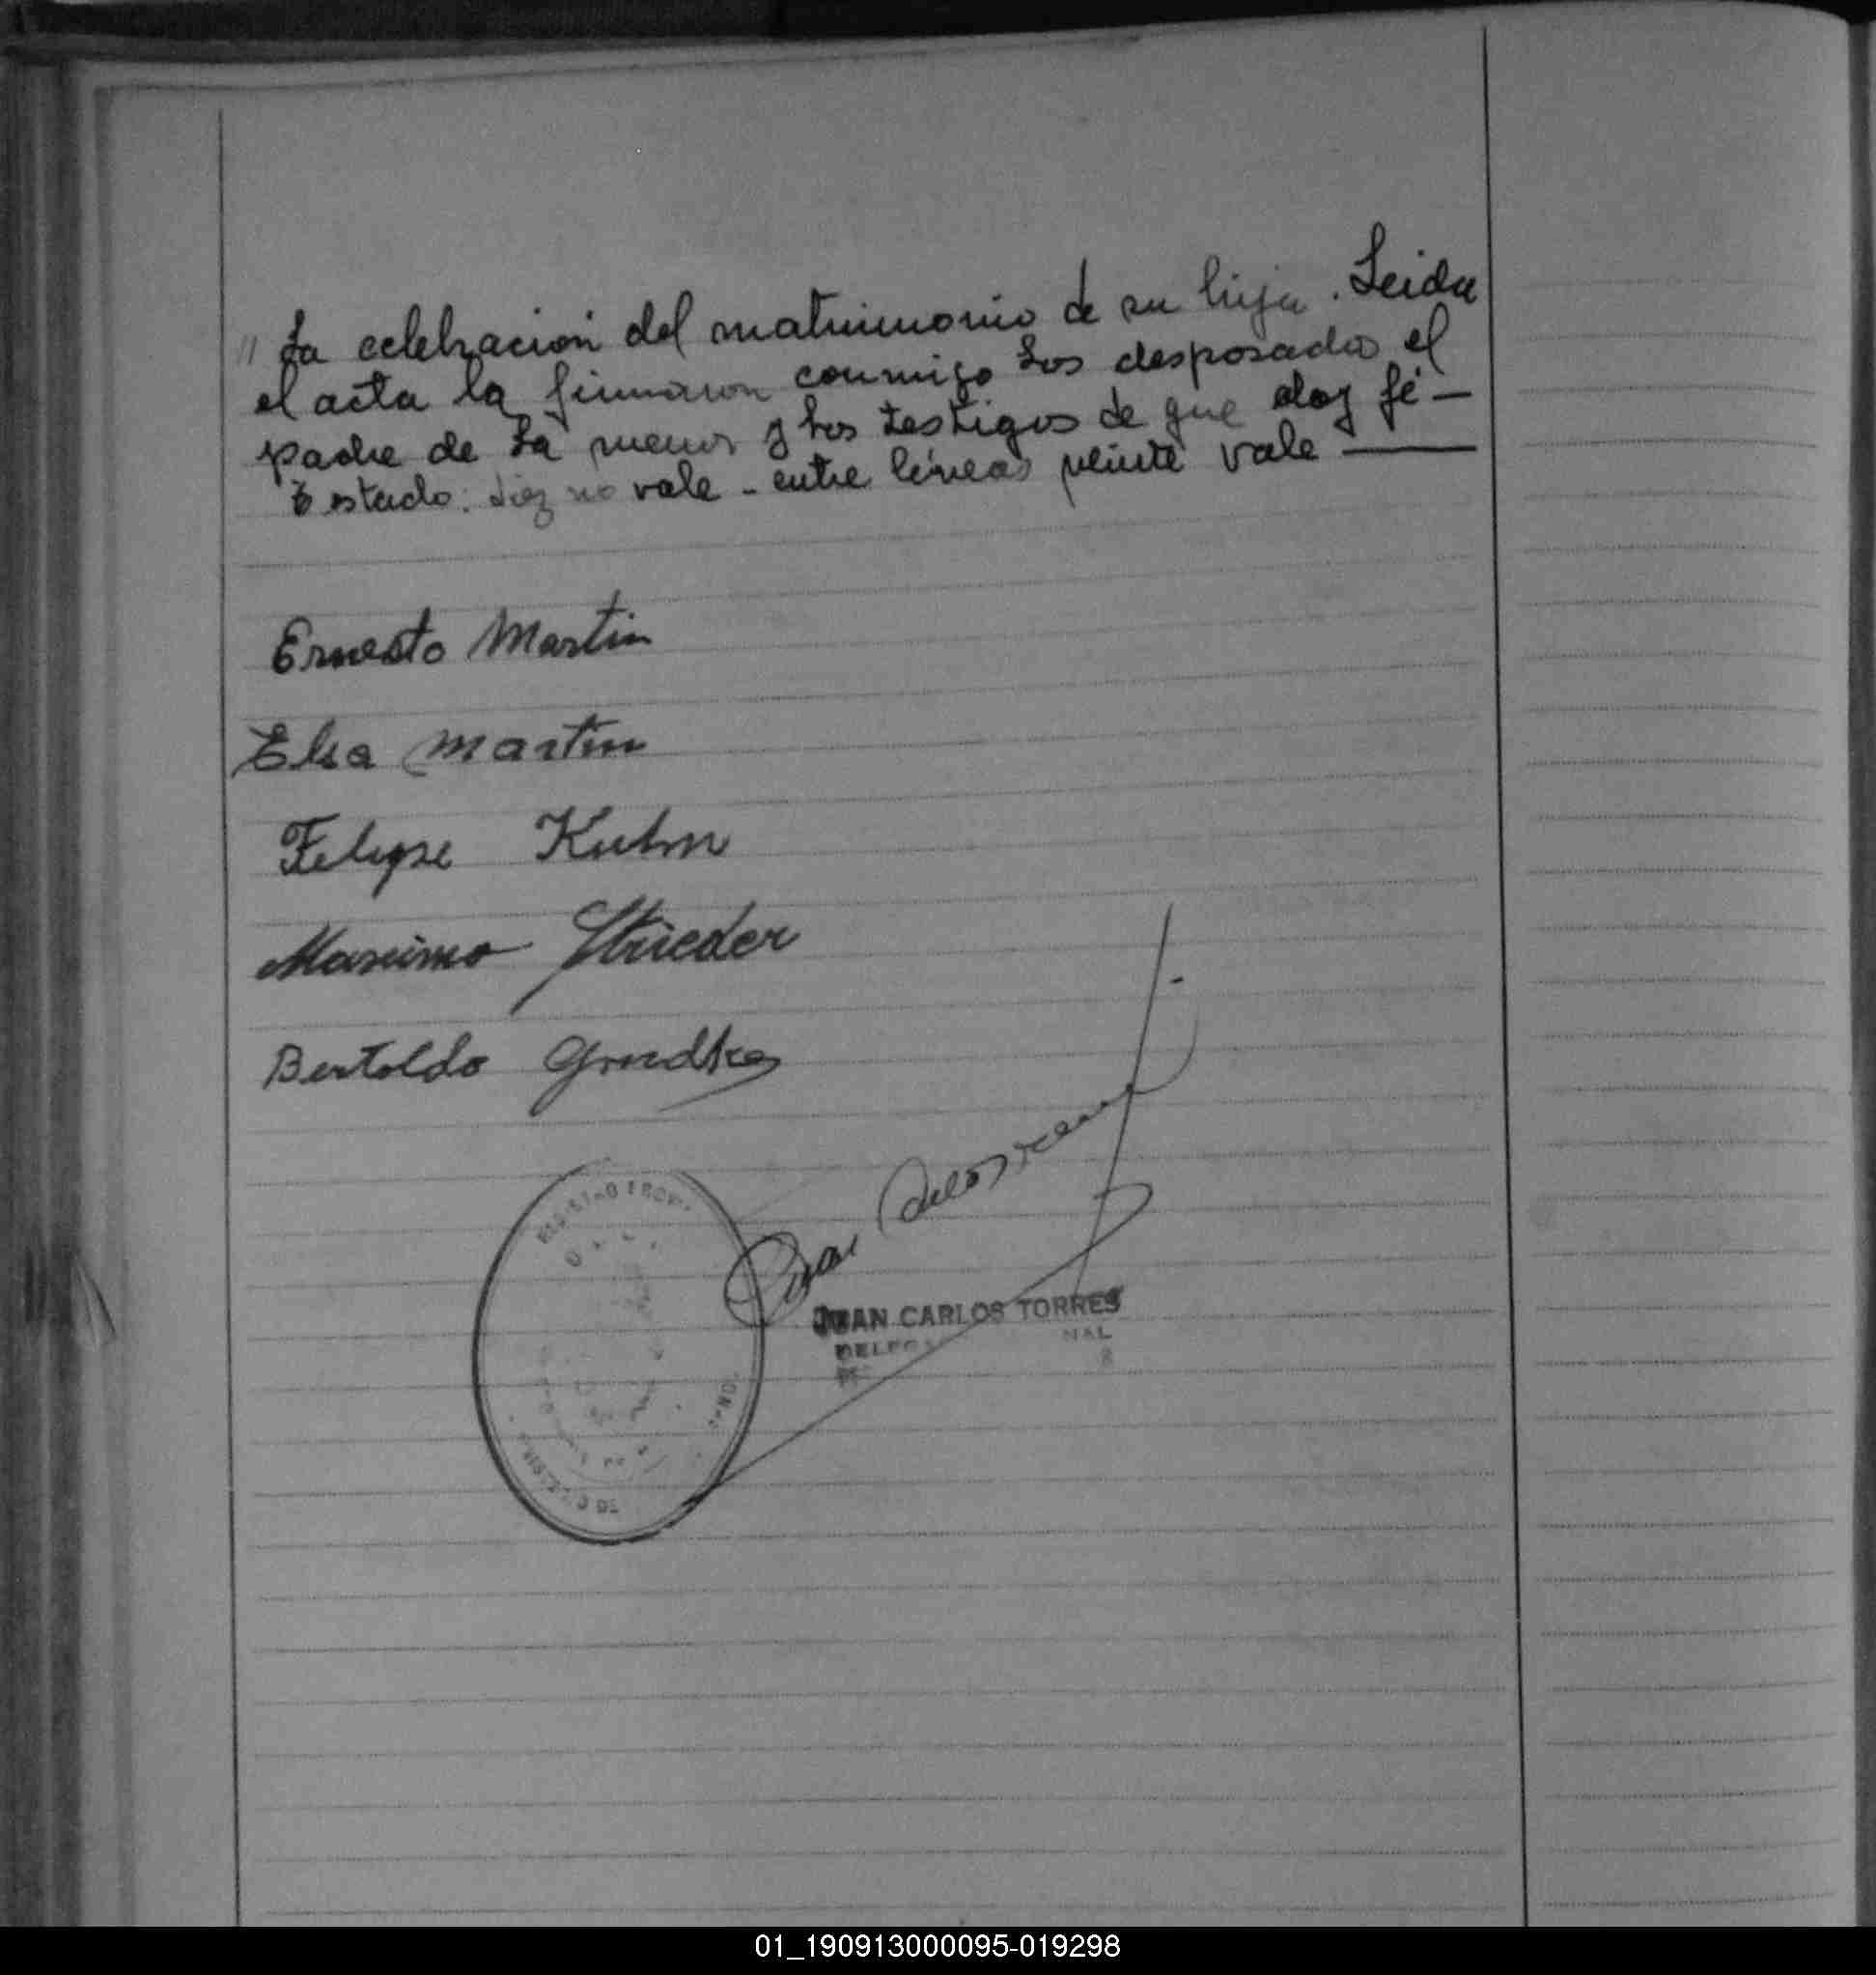 " La celebración del matrimonio de su hija. Leida
el acta la firmaron conmigo los desposados el
padre de la menor y los testigos de que doy fé —
Testado: diez no vale - entre líneas veinte vale —
Ernesto Martin
Elsa Martin
Felipe Kuhn
Maximo Strieder
Bertoldo
JUAN CARLOS TORRES
01_190913000095-019298